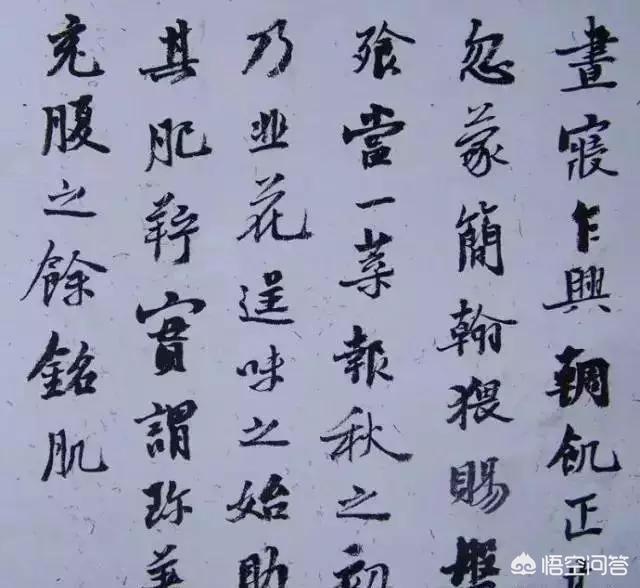 晝寢乍興輖飢正
忽蒙簡翰猥賜盤
飧當一葉報秋之初
乃韭花逞味之始助
其肥羜實謂珍
充腹之餘銘肌
悟空问答